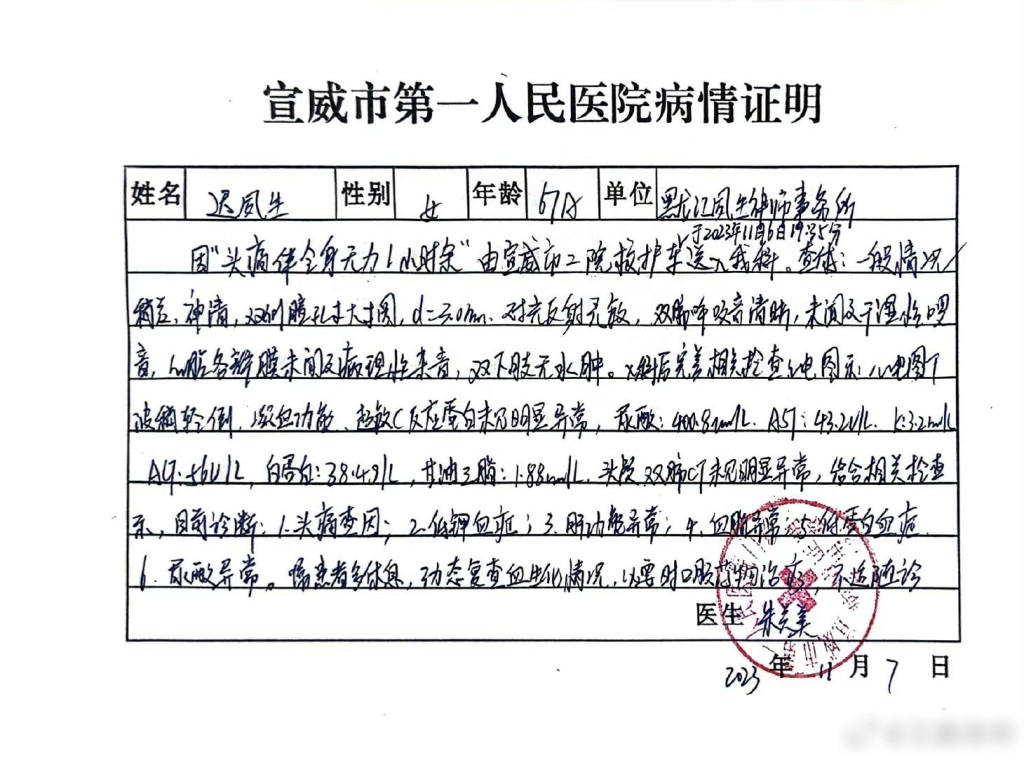 宣威市第一人民医院病情证明
姓名 迟夙生 性别 女 年龄 67岁 单位 黑龙江夙生律师事务所
于2023年11月6日19:35分
因"头痛伴全身无力1小时余"由宣威市二院救护车送入我科。查体:一般情况
稍差、神清,双侧瞳孔等大等圆,d=3.0mm、对光反射灵敏,双肺呼吸音清晰,未闻及干湿性啰
音,心脏各瓣膜未闻及病理性杂音,双下肢无水肿。入科后完善相关检查心电图示:心电图T
波稍低倒,凝血功能、超敏C反应蛋白未见明显异常,尿酸:400.8um/L. AST:43.2U/L. K:3.2m/L
ALT:56U/L,白蛋白:38.4g/L,甘油三脂:1.88mm/L.头颅双肺CT未见明显异常,结合相关检查
示,目前诊断:1.头痛查因;2.低钾血症;3.肝功能异常;4.血脂异常;5.低蛋白血症
6.尿酸异常。嘱患者多休息,动态复查血生化情况,必要时口服药物治疗,不适随诊
医生 朱关美
2023年11月7日